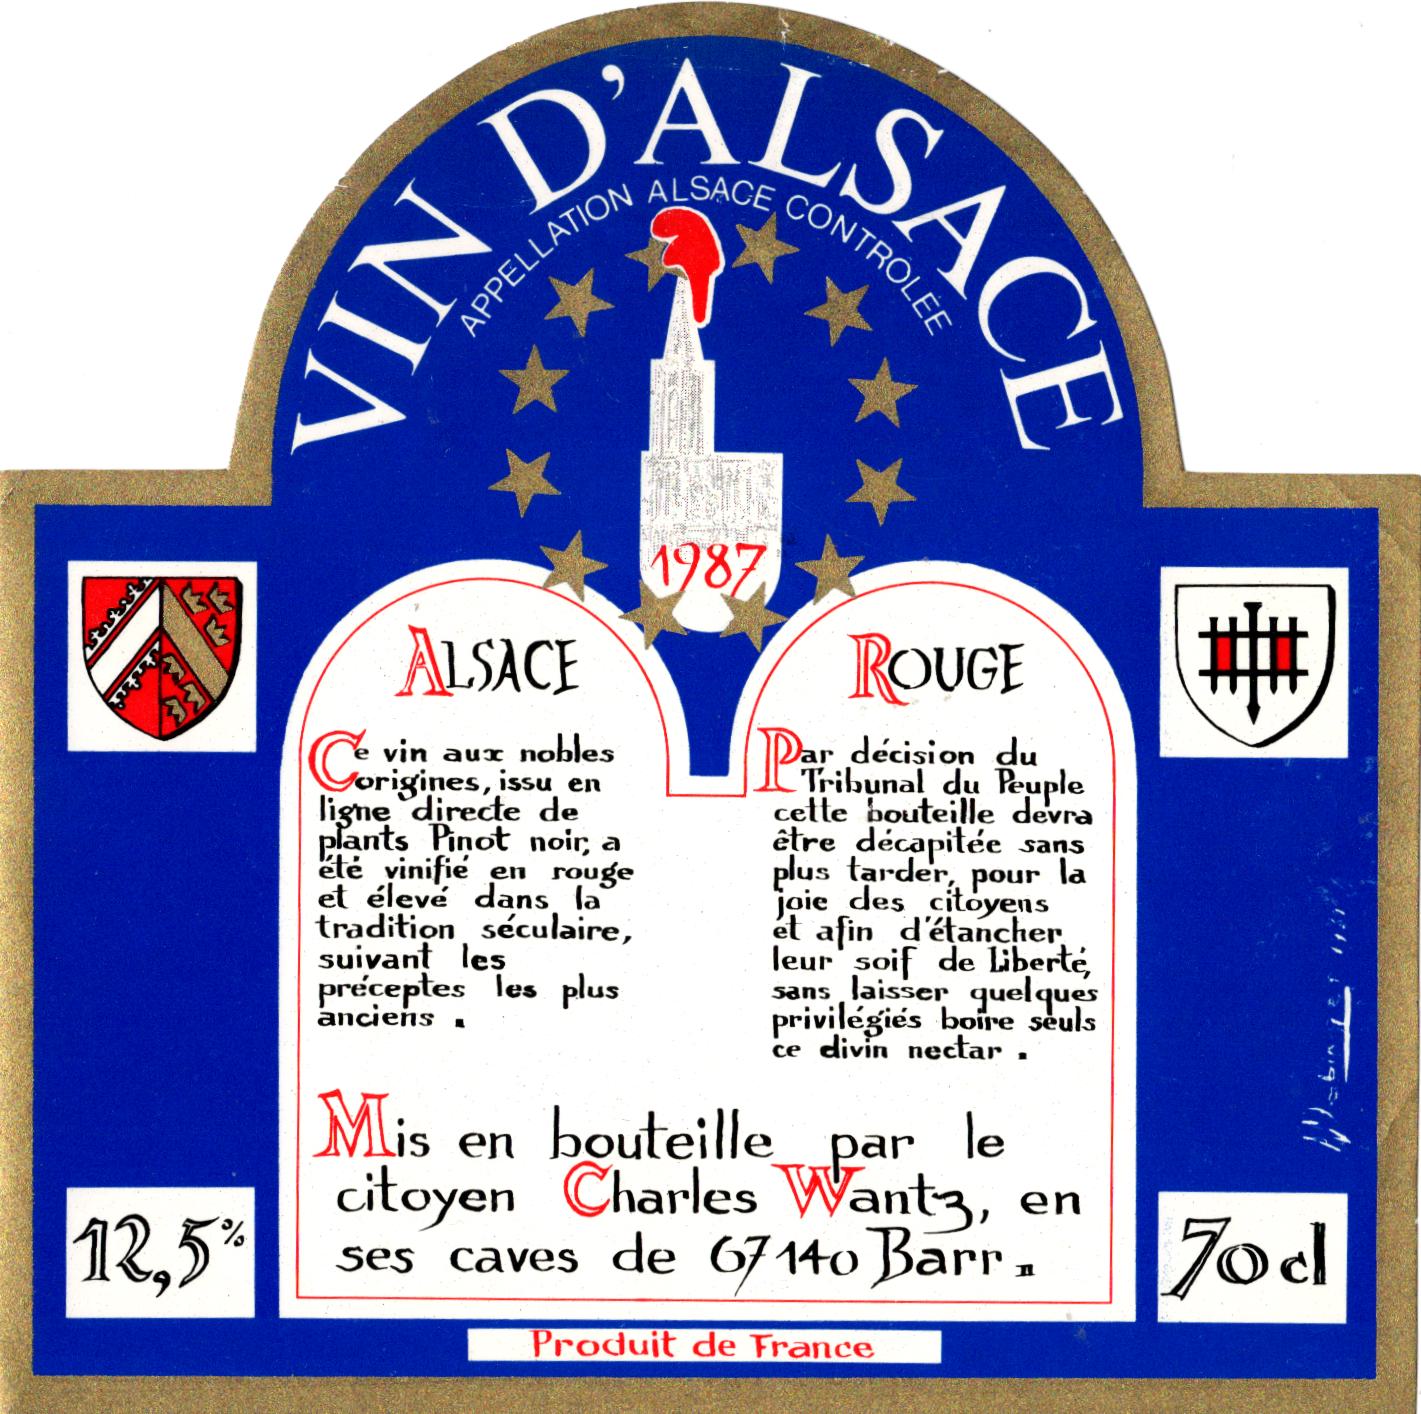 VIN D'ALSACE
APPELLATION ALSACE CONTRÔLÉE
1987
ALSACE
Ce vin aux nobles
origines, issu en
ligne directe de
plants Pinot noir, a
été vinifié en rouge
et élevé dans la
tradition séculaire,
suivant les
préceptes les plus
anciens .
ROUGE
Par décision du
Tribunal du Peuple
cette bouteille devra
être décapitée sans
plus tarder, pour la
joie des citoyens
et afin d'étancher
leur soif de Liberté,
sans laisser quelques
privilégiés boire seuls
ce divin nectar .
Mis en bouteille par le
citoyen Charles Wantz, en
ses caves de 67140 Barr.
12,5%
70cl
Produit de France